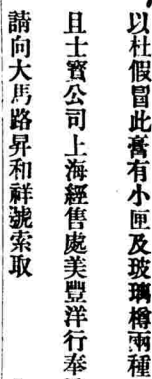 以杜假冒此膏有小匣及玻璃樽兩種
且士寳公司上海經售處美豐洋行奉
請向大馬路昇和祥號索取